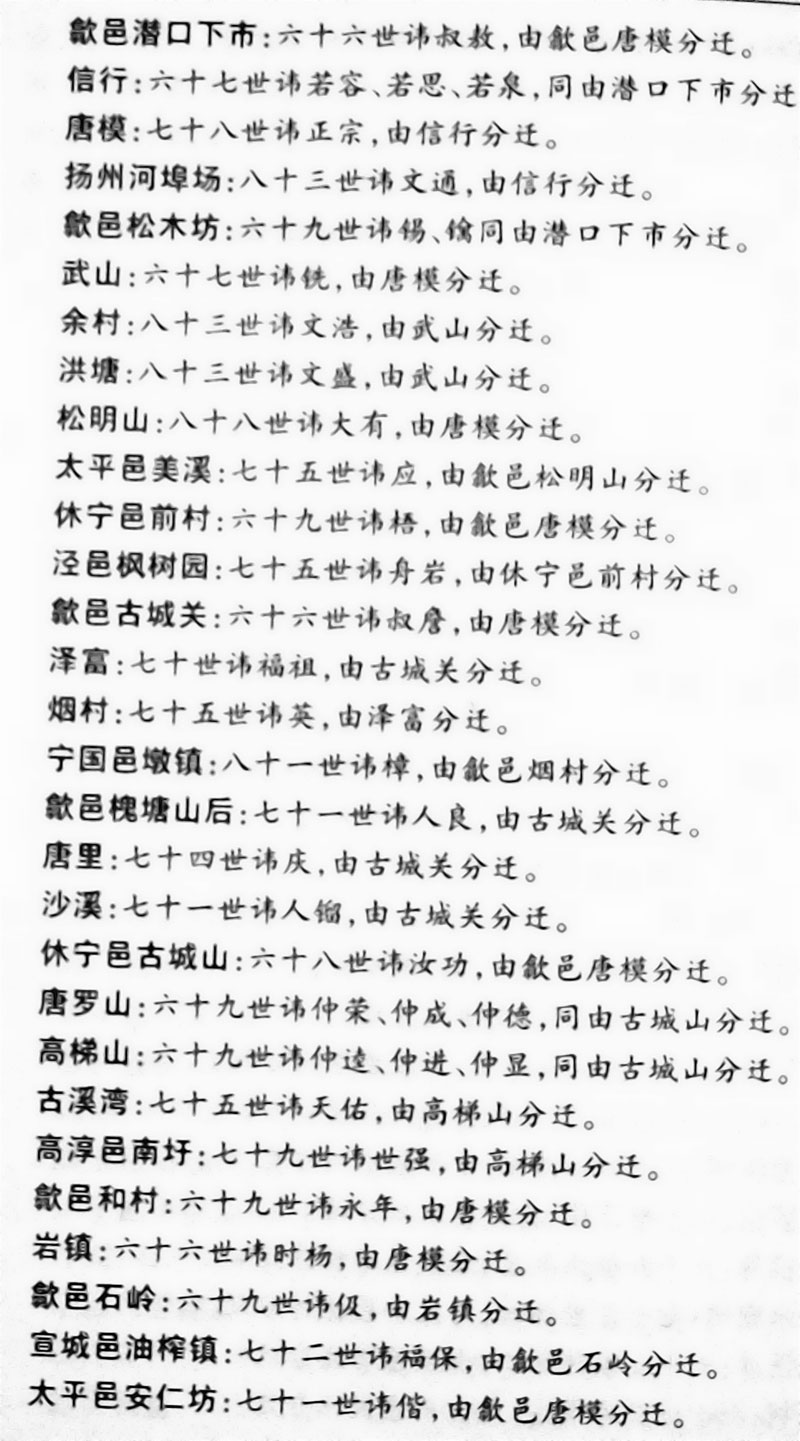 歙邑潜口下市:六十六世讳叔敖,由歙邑唐模分迁。
信行:六十七世讳若容、若思、若泉,同由潜口下市分迁
唐模:七十八世讳正宗,由信行分迁。
扬州河埠场:八十三世讳文通,由信行分迁。
歙邑松木坊:六十九世讳锡、镝同由潜口下市分迁。
武山:六十七世讳铣,由唐模分迁。
余村:八十三世讳文浩,由武山分迁。
洪塘:八十三世讳文盛,由武山分迁。
松明山:八十八世讳大有,由唐模分迁。
太平邑美溪:七十五世讳应,由歙邑松明山分迁。
休宁邑前村:六十九世讳梧,由歙邑唐模分迁。
泾邑枫树园:七十五世讳舟岩,由休宁邑前村分迁。
歙邑古城关:六十六世讳叔詹,由唐模分迁。
泽富:七十世讳福祖,由古城关分迁。
烟村:七十五世讳英,由泽富分迁。
宁国邑墩镇:八十一世讳樟,由歙邑烟村分迁。
歙邑槐塘山后:七十一世讳人良,由古城关分迁。
唐里:七十四世讳庆,由古城关分迁。
沙溪:七十一世讳人镏,由古城关分迁。
休宁邑古城山:六十八世讳汝功,由歙邑唐模分迁。
唐罗山:六十九世讳仲荣、仲成、仲德,同由古城山分迁。
高梯山:六十九世讳仲逵、仲进、仲显,同由古城山分迁。
古溪湾:七十五世讳天佑,由高梯山分迁。
高淳邑南圩:七十九世讳世强,由高梯山分迁。
歙邑和村:六十九世讳永年,由唐模分迁。
岩镇:六十六世讳时杨,由唐模分迁。
歙邑石岭:六十九世讳伋,由岩镇分迁。
宣城邑油榨镇:七十二世讳福保,由歙邑石岭分迁。
太平邑安仁坊:七十一世讳偕,由歙邑唐模分迁。